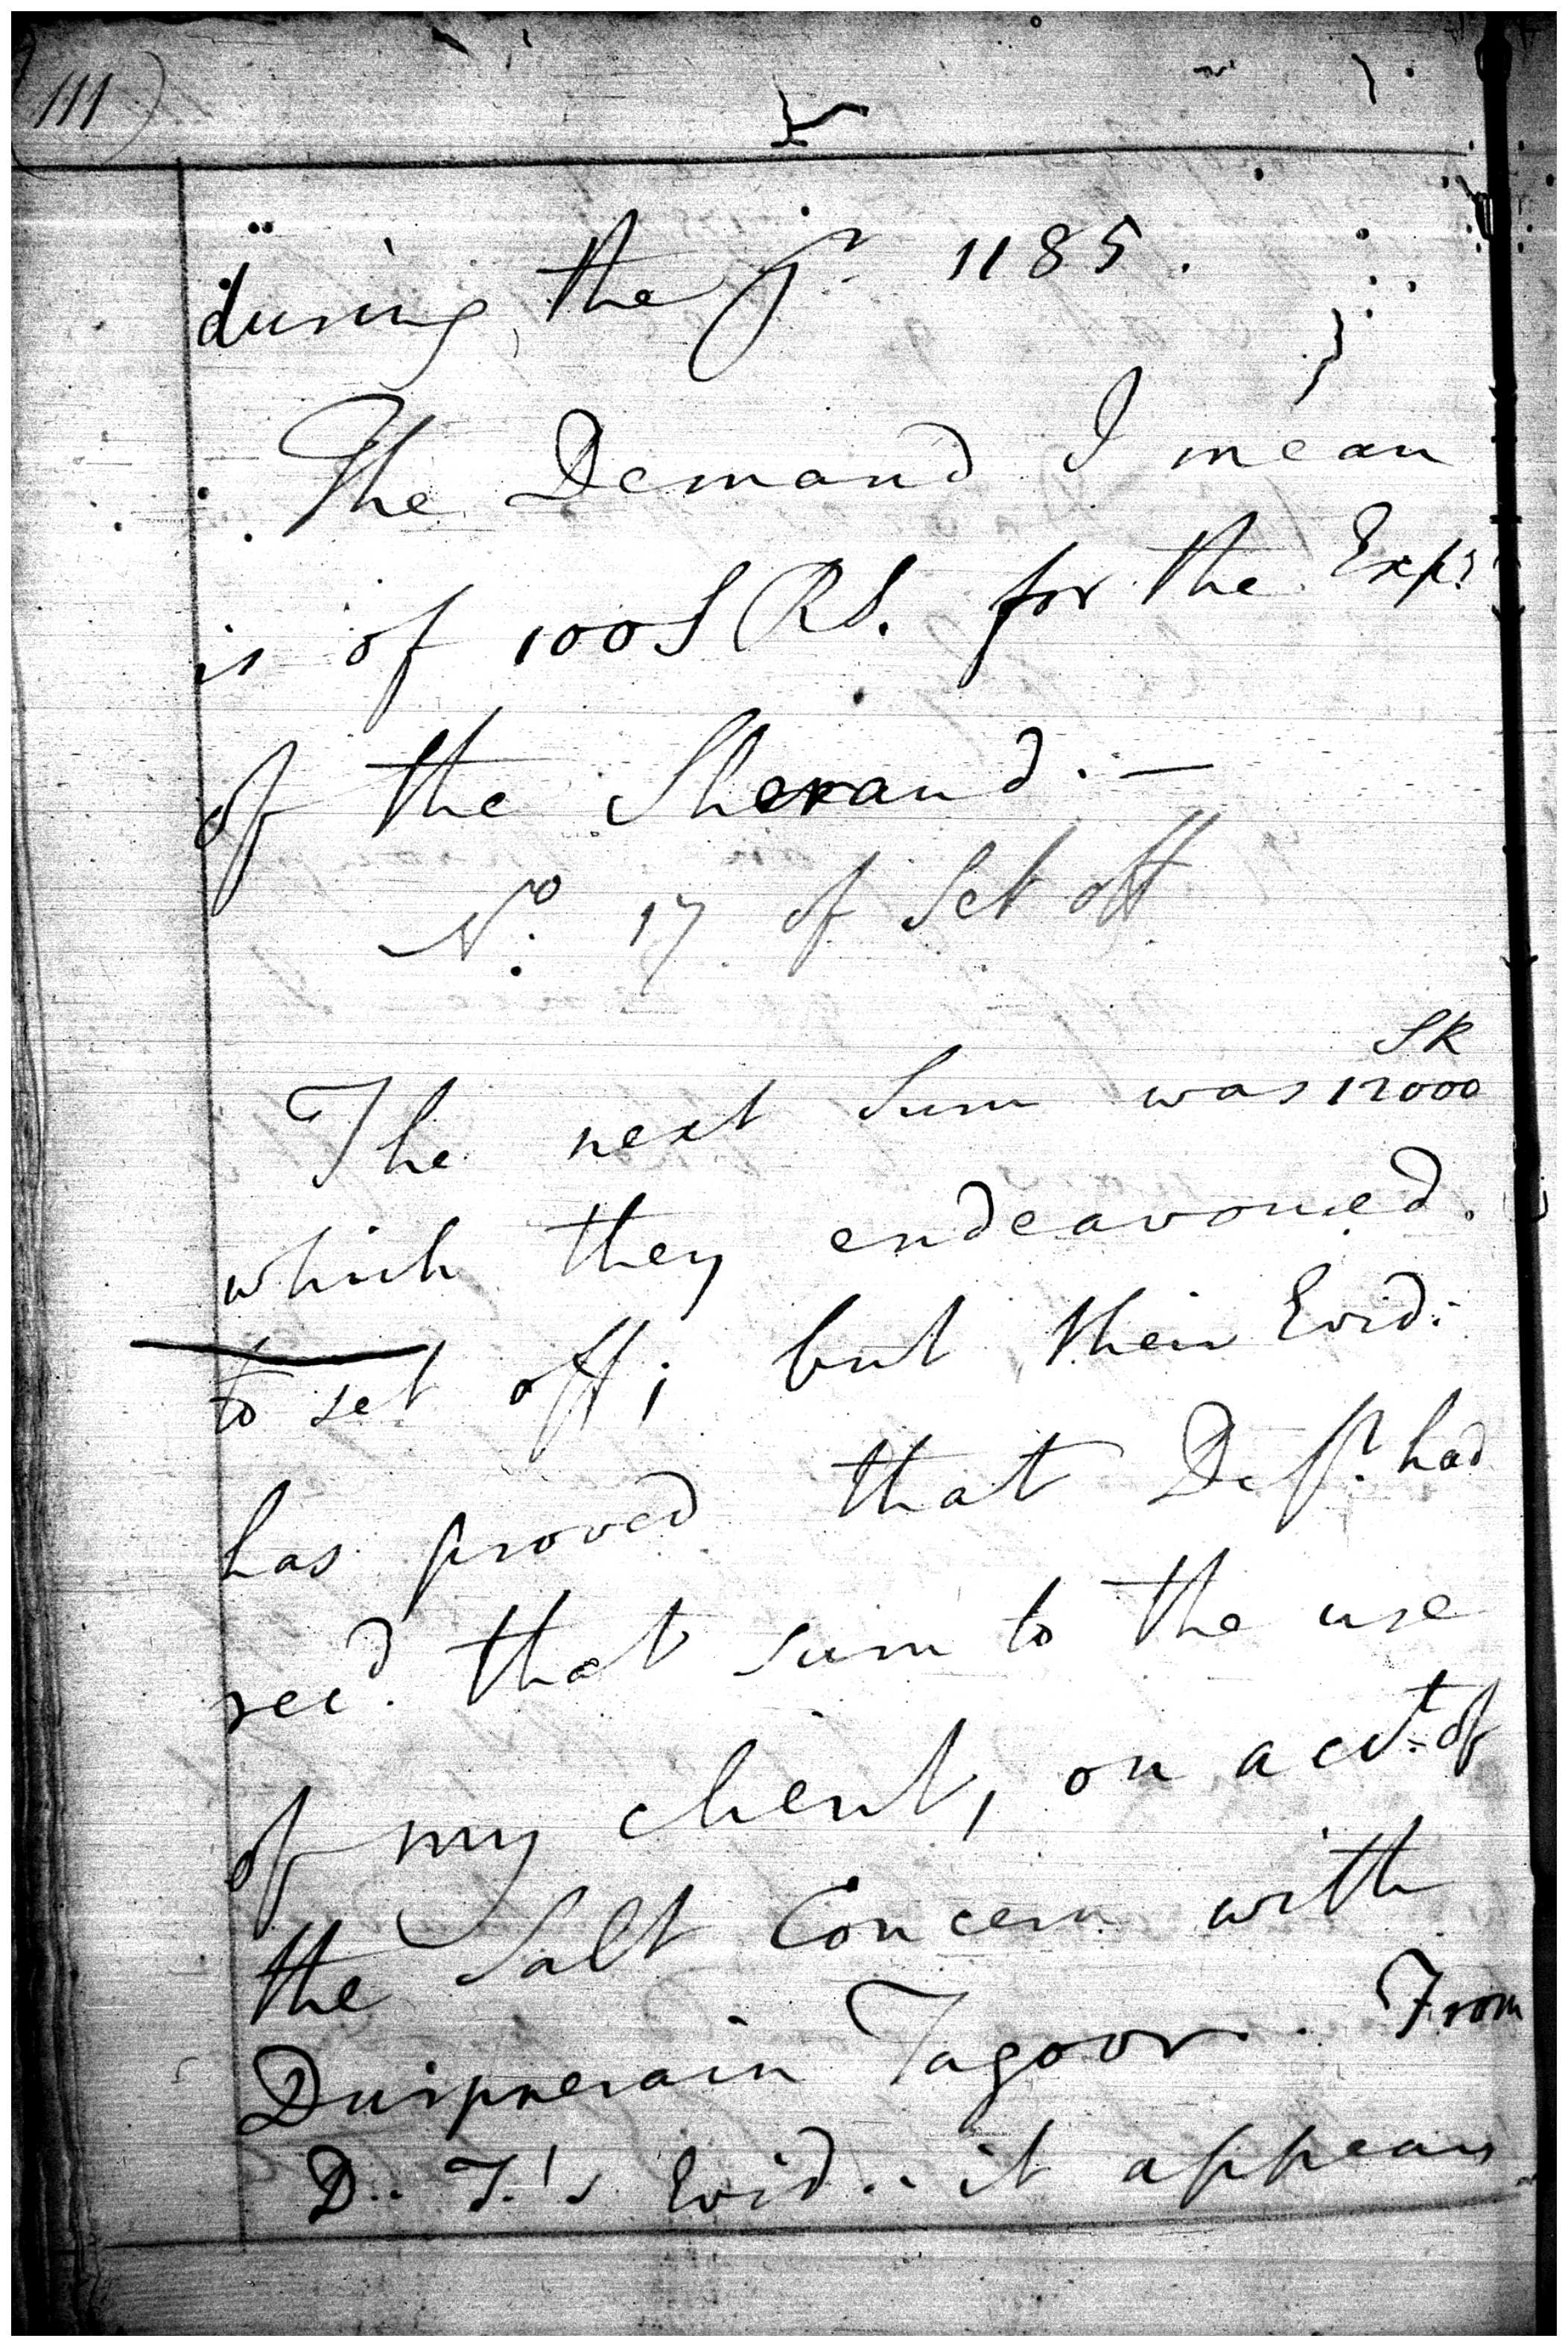 (111)
during the yr. 1185.
The Demand I mean
is of 100 S Rs. for the Exps
of the Sherand. —
No. 17 of Set off
SR
The next Sum was 12000
which they endeavoured
to set off; but their Evid:
has proved that Deft. had
recd. that sum to the use
of my client, on acct. of
the Salt Concern with
Durpnerain Tagoor. From
D. T.'s Evid. it appears